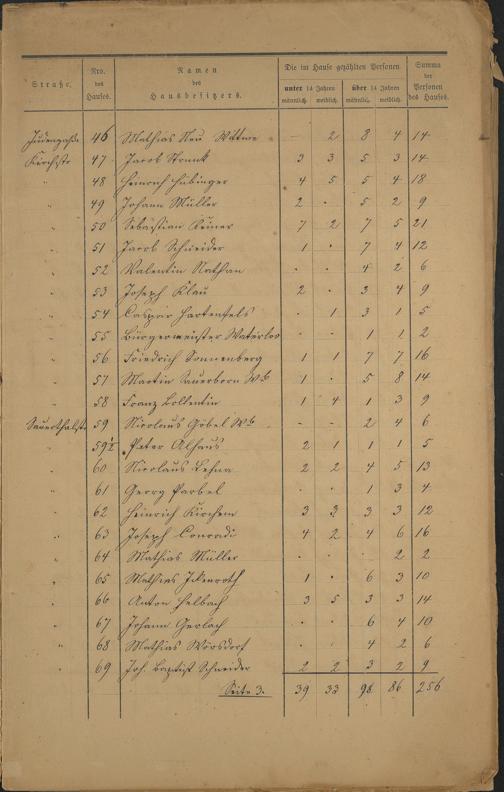 Straße.
Nro. des Hauses.
Namen des Hausbesitzers.
Die im Hause gezählten Personen
unter 14 Jahren
über 14 Jahren
männlich. weiblich. männlich. weiblich.
Summa der Personen des Hauses.
Judengasse 46 Mathias Neu Wittwe - 2 8 4 14
Kirchstr 47 Jacob 3 3 5 3 14
" 48 Heinrich Hubinger 4 5 5 4 18
" 49 Johann Müller 2 · 5 2 9
" 50 Sebastian 7 2 7 5 21
" 51 Jacob Schneider 1 · 7 4 12
" 52 Valentin Nathan · · 4 2 6
" 53 Joseph Klau 2 · 3 4 9
" 54 Caspar Hartenfels · 1 3 1 5
" 55 Bürgermeister Waterloo · · 1 1 2
" 56 Friedrich Sonnenberg 1 1 7 7 16
" 57 Martin Sauerborn Wb 1 · 5 8 14
" 58 Franz 1 4 1 3 9
Sauerthalstr 59 Nicolaus Göbel Wb - · 2 4 6
" 59½ Peter Alhaus 2 1 1 1 5
" 60 Nicolaus Lehna 2 2 4 5 13
" 61 Georg · · 1 3 4
" 62 Heinrich Kirchem 3 3 3 3 12
" 63 Joseph Conradi 4 2 4 6 16
" 64 Mathias Müller · · · 2 2
" 65 Mathias Ickenroth 1 · 6 3 10
" 66 Anton Helbach 3 5 3 3 14
" 67 Johann Gerlach · · 6 4 10
" 68 Mathias Wörsdorf · · 4 2 6
" 69 Joh. Baptist Schneider 2 2 3 2 9
Seite 3. 39 33 98 86 256